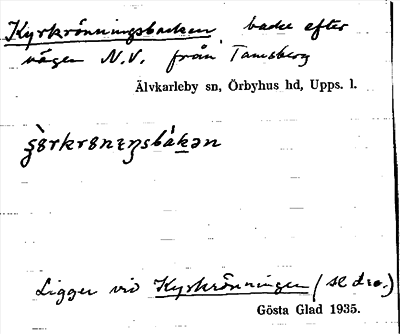 Kyrkrönningsbacken, backe efter
vägen N.V. från Tamsberg
Älvkarleby sn, Örbyhus hd, Upps. l.
Ligger vid Kyrkrönningen (se d:o.)
Gösta Glad 1935.